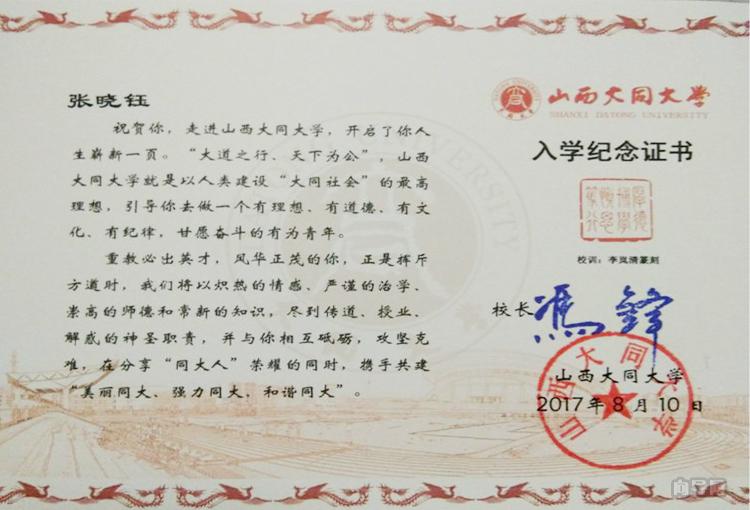 张晓钰
祝贺你，走进山西大同大学，开启了你人
生崭新一页。“大道之行、天下为公”，山西
大同大学就是以人类建设“大同社会”的最高
理想，引导你去做一个有理想、有道德、有文
化、有纪律，甘愿奋斗的有为青年。
重教必出英才，风华正茂的你，正是挥斥
方遒时，我们将以炽热的情感、严谨的治学、
崇高的师德和常新的知识，尽到传道、授业、
解惑的神圣职责，并与你相互砥砺，攻坚克
难，在分享“同大人”荣耀的同时，携手共建
“美丽同大、强力同大，和谐同大”。
山西大同大学
SHANXI DATONG UNIVERSITY
入学纪念证书
校训：李岚清篆刻
校长
山西大同大学
山西大同大学
2017年8月10日